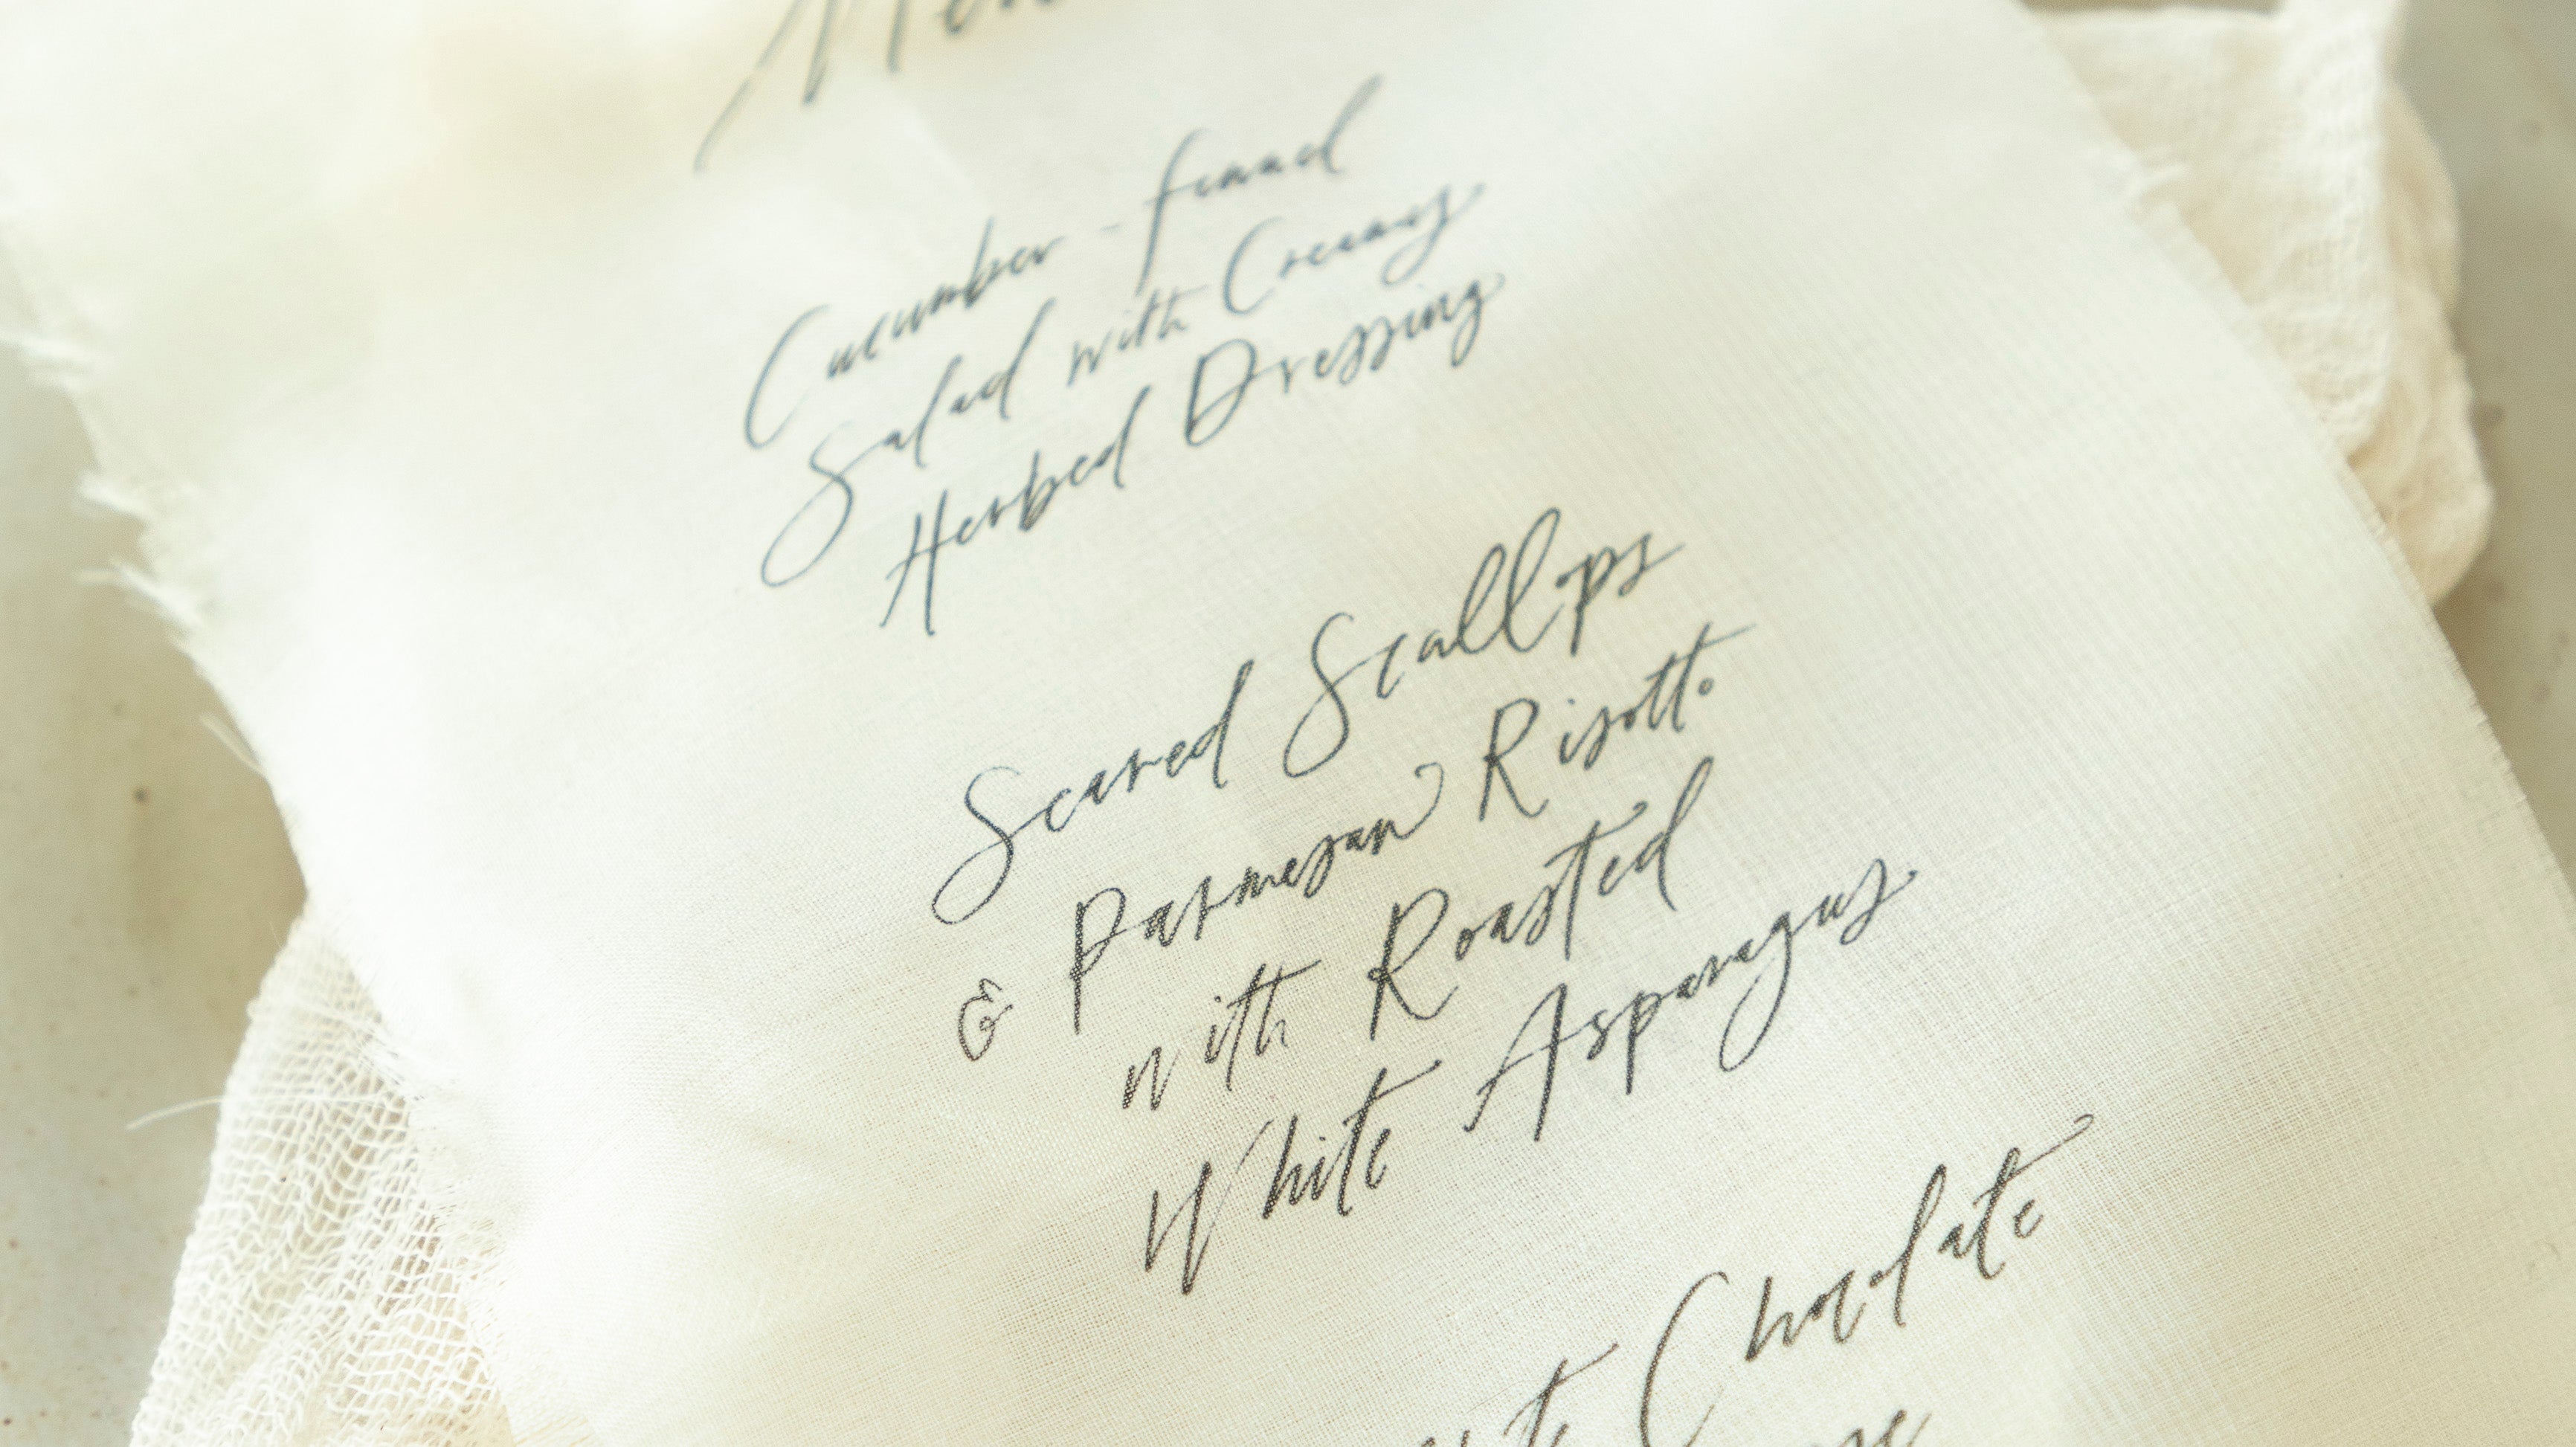 Cucumber - fennel
Salad with Creamy
Herbed Dressing
Seared Scallops
& Parmesan Risotto
with Roasted
White Asparagus
Chocolate